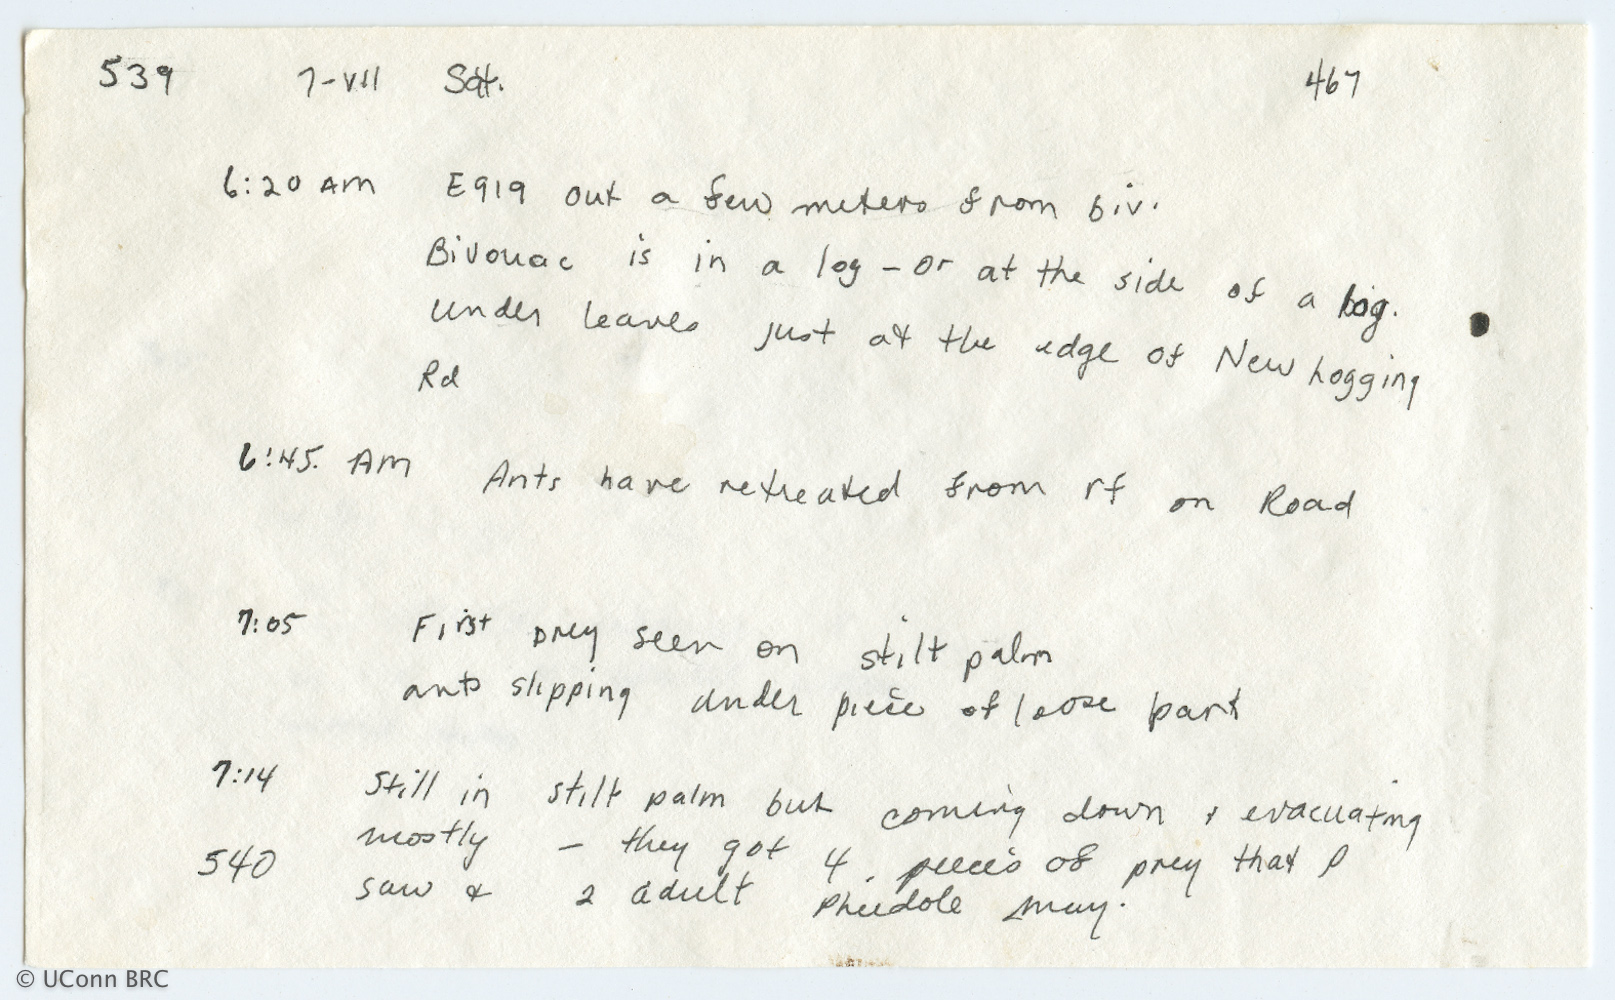 539 7-VII Sat. 467
6:20 AM E919 out a few meters from biv.
Bivouac is in a log - or at the side of a log.
Under leaves just at the edge of New Logging
Rd
6:45. AM Ants have retreated from rf on Road
7:05 First prey seen on stilt palm
ants slipping under piece of loose bark
7:14 Still in stilt palm but coming down & evacuating
mostly - they got 4 pieces of prey that I
540 saw & 2 adult Pheidole
© UConn BRC